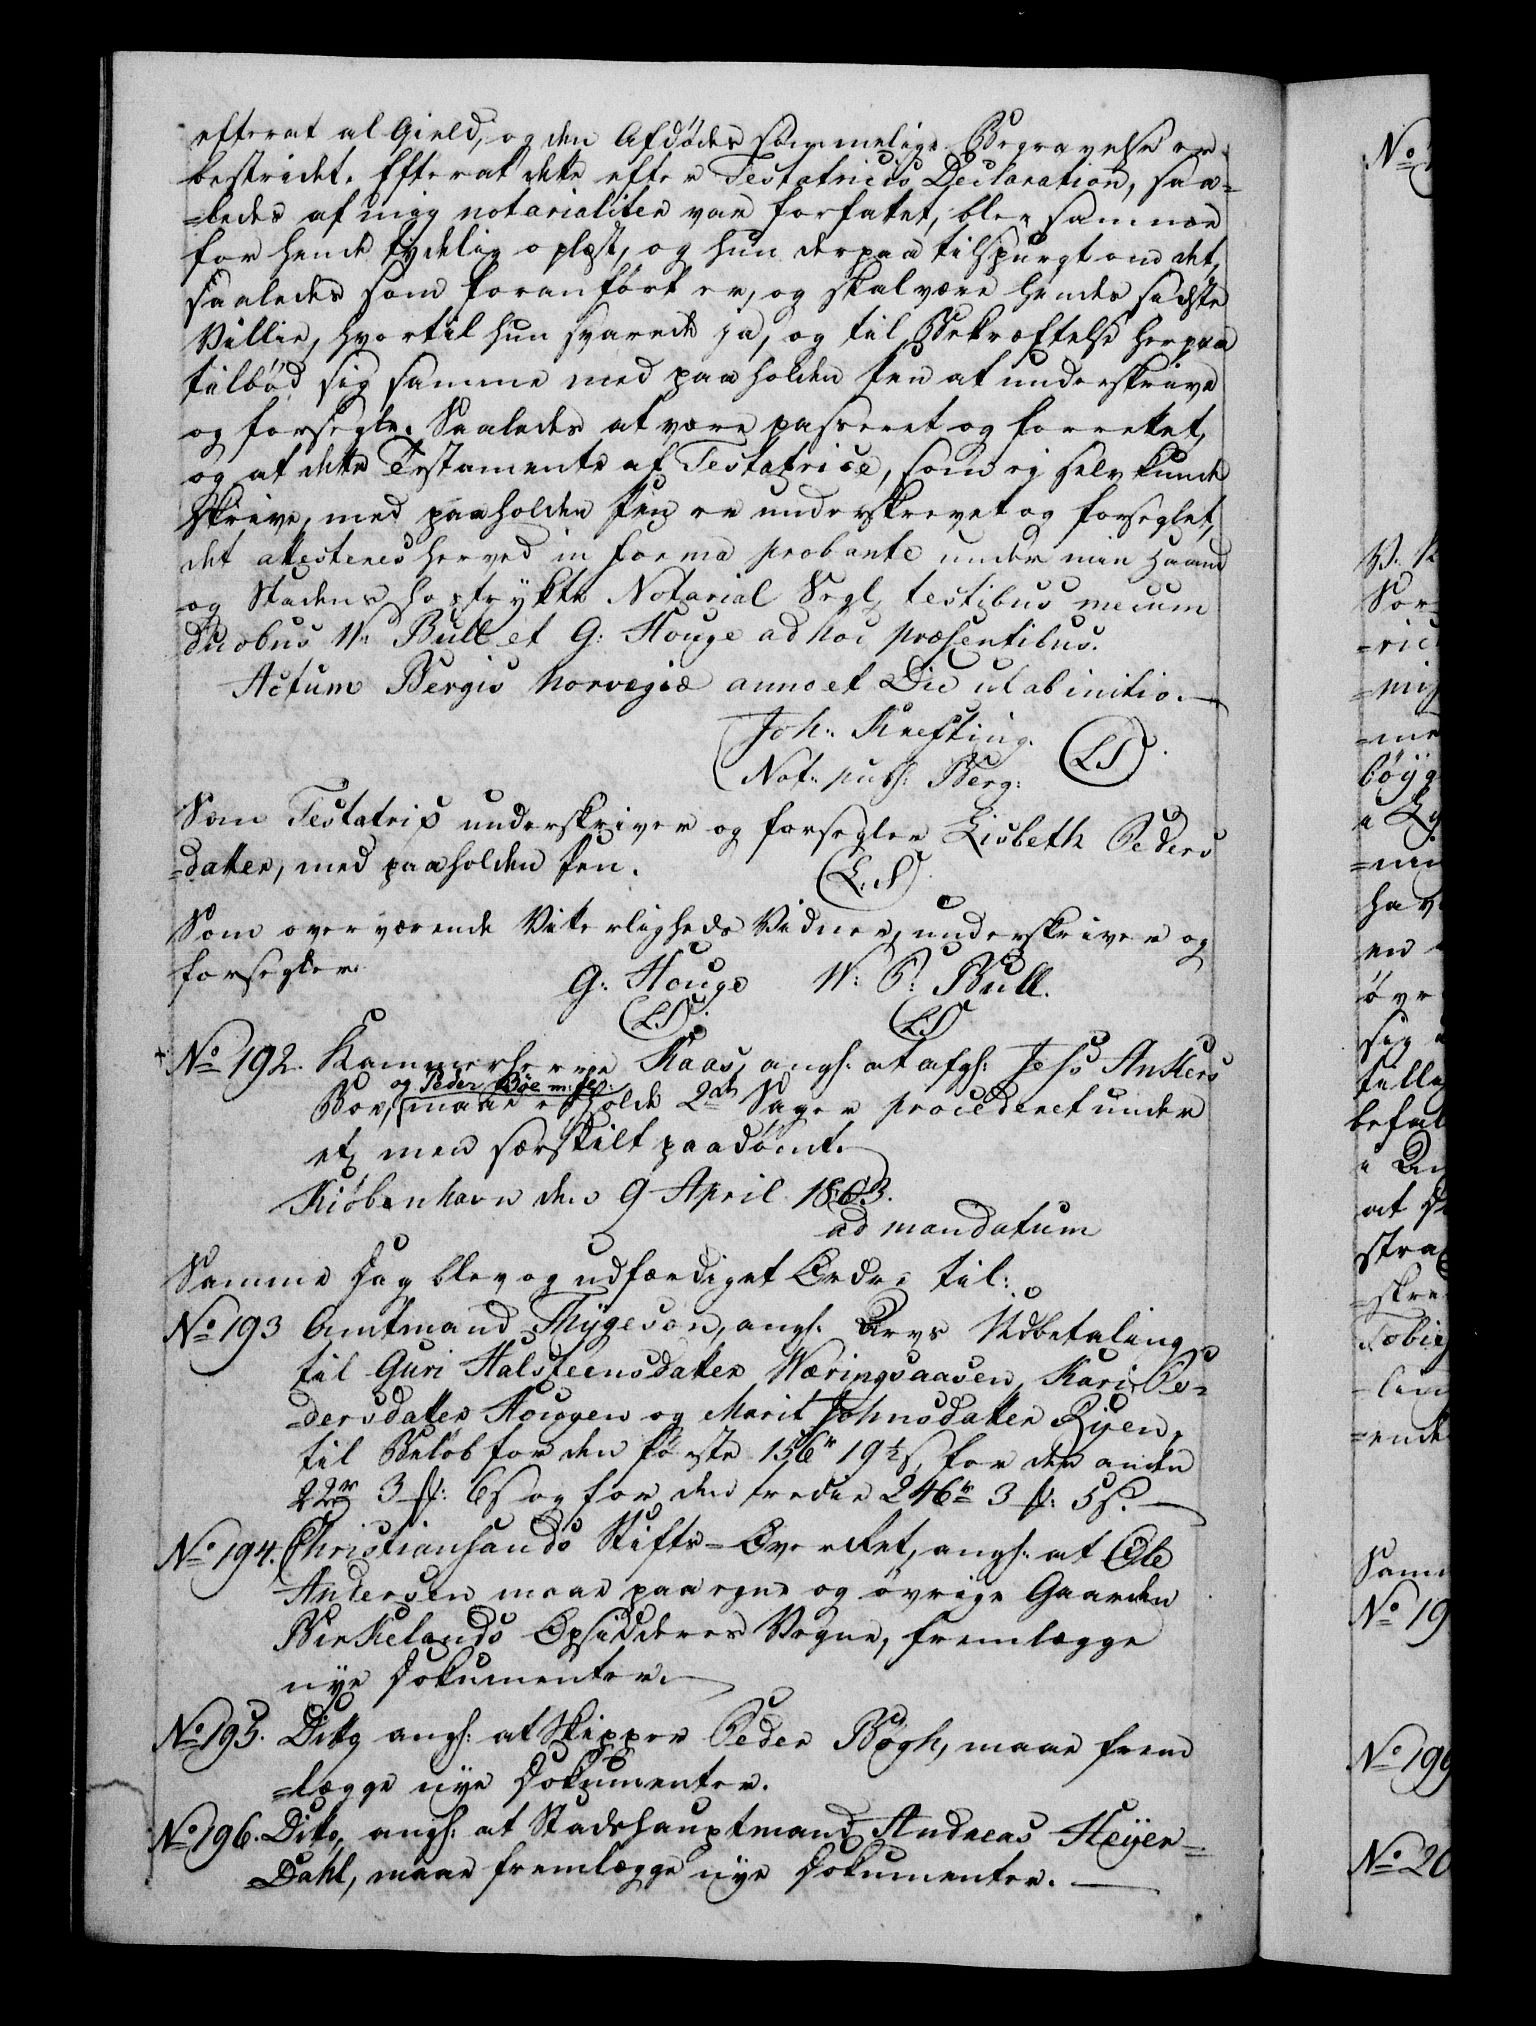 efterat al Gield, og den Afdödes sömmelige Begravelse er
bestridet. Efterat dette efter Testatricis Declaration, saa=
=ledes af mig notarialiter var forfatet, blev samme
for hende tydelig oplæst, og hun derpaa tilspurgt om det,
saaledes som foranfört er, og skal være hendes sidste
Villie, hvortil hun svarede ja, og til Bekræftelse herpaa
tilböd sig samme med paaholden Pen at underskrive
og forsegle. Saaledes at være passeret og forrettet,
og at dette Testamente af Testatrice, som ej selv kunde
skrive, med paaholden Pen er underskrevet og forseglet,
det attesteres herved in forma probante under min Haand
og Stadens hostrykte Notarial Segl, testibus mecum
duobus W: Bull et G: Houge ad hoc præsentibus.
Actum Bergis Norvegiæ anno et Die ut ab initio.
Joh: Krefting.
Not: publ: Berg: (LS)
Som Testatrix underskriver og forsegler Lisbeth Peders
=datter, med paaholden Pen.
(L.S)
Som overværende Vitterligheds Vidner, underskriver og
forsegler
G: Houge W: P: Bull.
(LS) (LS)
No 192. Kammerherre Kaas, angl: at afgl: Jess Ankers
og Peder Böe m: fl:
Boe, maae erholde 2de Sager procederet under
et, men særskilt paadömt.
Kiöbenhavn den 9 April 1803.
ad mandatum
Samme Dag blev og udfærdiget Ordre til:
No 193 Amtmand Thygeson, angl: Arvs Udbetaling
til Guri Halsteensdatter Wæringsaasen, Kari Pe=
=dersdatter Hougen og Marit Johnsdatter Ryen,
til Belöb for den förste 156 rd 19½ s, for den anden
22 rd 3 #: 6 s og for den tredie 246 rd 3 #: 5 s.
No 194. Christiansands Stifts=Overret, angl: at Ole
Andersen maae paa egne og övrige Gaarden
Birkelands Opsidderes Vegne, fremlægge
nye Dokumenter.
No 195. Dito angl: at Skipper Peder Bögh, maae frem
=lægge nye Dokumenter.
No 196. Dito, angl: at Stadshauptmand Andreas Heyer=
=Dahl, maae fremlægge nye Dokumenter.